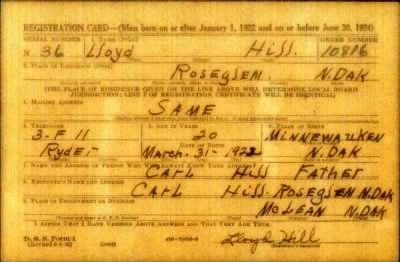 REGISTRATION CARD—(Men born on or after January 1, 1922 and on or before June 30, 1924)
SERIAL NUMBER 1. NAME (Print) ORDER NUMBER
N 36 Lloyd Hill 10816
2. PLACE OF RESIDENCE (Print)
ROSEGLEN. N.DAK
[THE PLACE OF RESIDENCE GIVEN ON THE LINE ABOVE WILL DETERMINE LOCAL BOARD
JURISDICTION; LINE 2 OF REGISTRATION CERTIFICATE WILL BE IDENTICAL]
3. MAILING ADDRESS
SAME
4. TELEPHONE 5. AGE IN YEARS 6. PLACE OF BIRTH
3-F 11 20 MINNEWAUKEN
DATE OF BIRTH
Ryder March-31-1922 N.DAK
7. NAME AND ADDRESS OF PERSON WHO WILL ALWAYS KNOW YOUR ADDRESS
CARL Hill FATHER
8. EMPLOYER'S NAME AND ADDRESS
CARL Hill-ROSEGLEN N.DAK
9. PLACE OF EMPLOYMENT OR BUSINESS
McLEAN N.DAK
I AFFIRM THAT I HAVE VERIFIED ABOVE ANSWERS AND THAT THEY ARE TRUE.
D. S. S. Form 1
Lloyd Hill